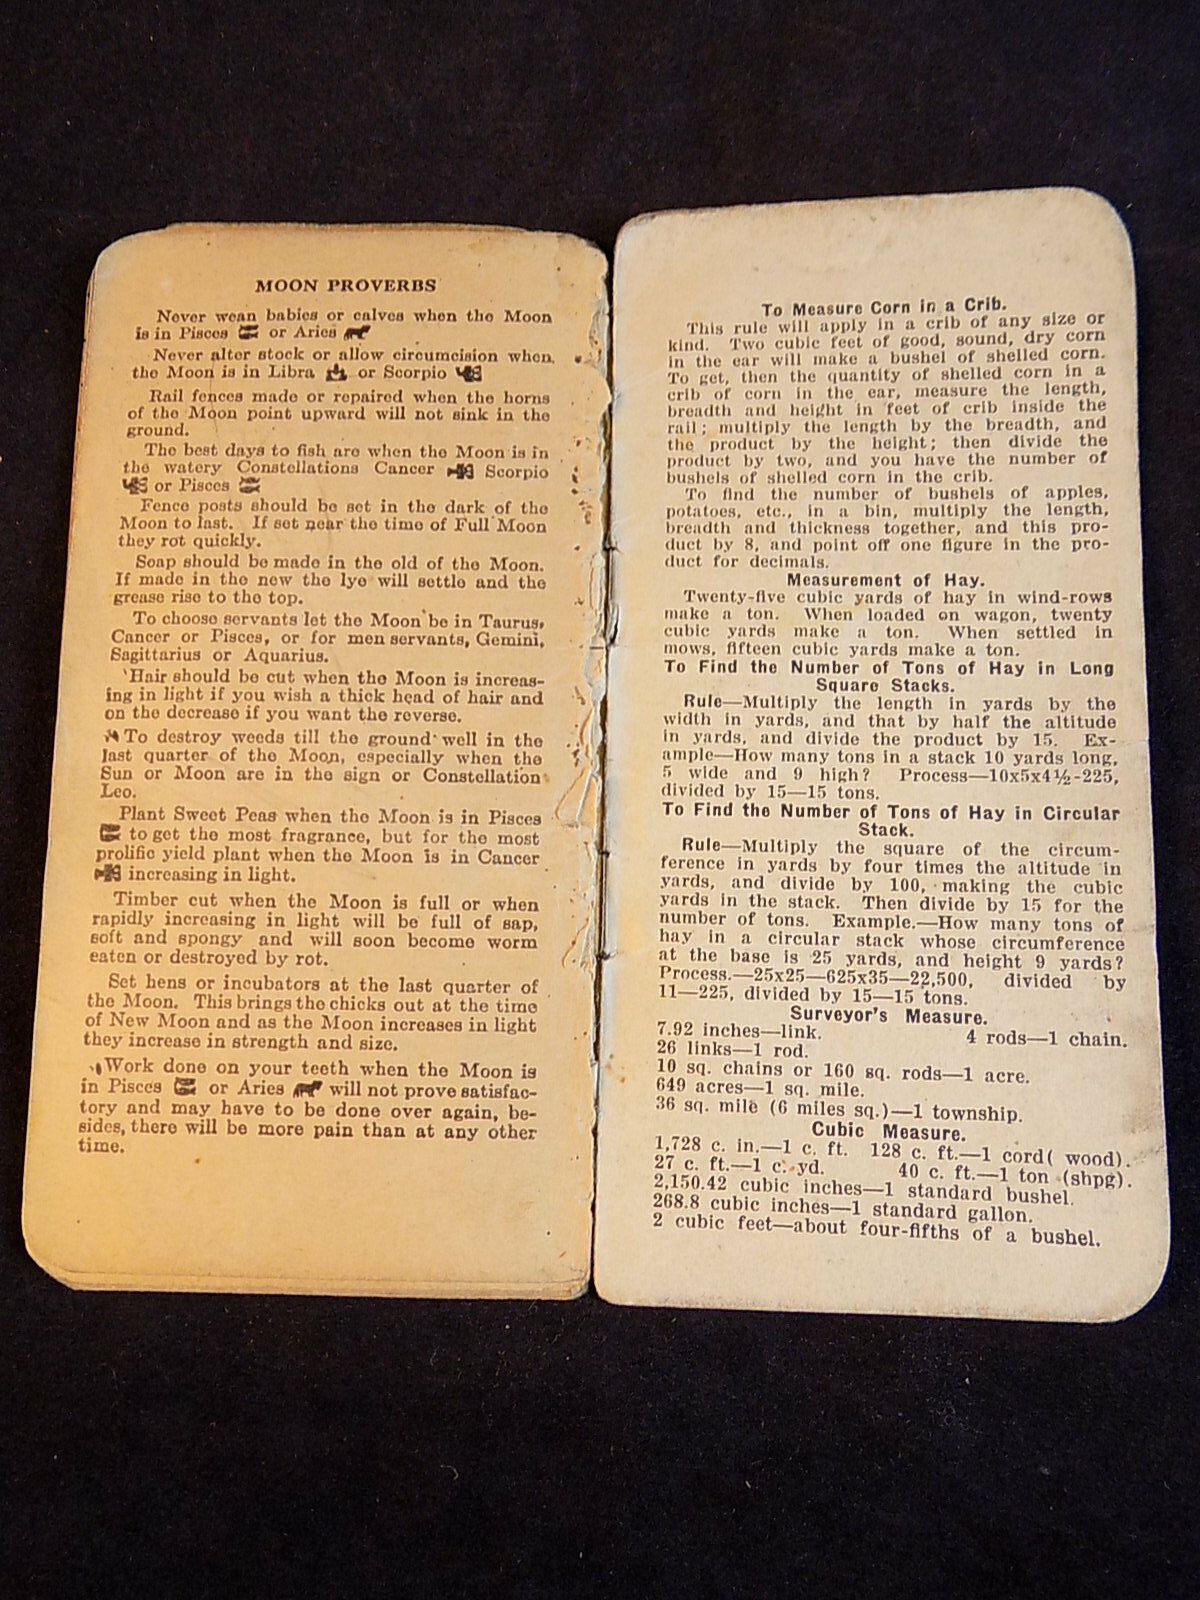 MOON PROVERBS
Never wean babies or calves when the Moon
is in Pisces or Aries
Never alter stock or allow circumcision when
the Moon is in Libra or Scorpio
Rail fences made or repaired when the horns
of the Moon point upward will not sink in the
ground.
The best days to fish are when the Moon is in
the watery Constellations Cancer Scorpio
or Pisces
Fence posts should be set in the dark of the
Moon to last. If set near the time of Full Moon
they rot quickly.
Soap should be made in the old of the Moon.
If made in the new the lye will settle and the
grease rise to the top.
To choose servants let the Moon be in Taurus,
Cancer or Pisces, or for men servants, Gemini,
Sagittarius or Aquarius.
Hair should be cut when the Moon is increas-
ing in light if you wish a thick head of hair and
on the decrease if you want the reverse.
To destroy weeds till the ground well in the
last quarter of the Moon, especially when the
Sun or Moon are in the sign or Constellation
Leo.
Plant Sweet Peas when the Moon is in Pisces
to get the most fragrance, but for the most
prolific yield plant when the Moon is in Cancer
increasing in light.
Timber cut when the Moon is full or when
rapidly increasing in light will be full of sap,
soft and spongy and will soon become worm
eaten or destroyed by rot.
Set hens or incubators at the last quarter of
the Moon. This brings the chicks out at the time
of New Moon and as the Moon increases in light
they increase in strength and size.
Work done on your teeth when the Moon is
in Pisces or Aries will not prove satisfac-
tory and may have to be done over again, be-
sides, there will be more pain than at any other
time.
To Measure Corn in a Crib.
This rule will apply in a crib of any size or
kind. Two cubic feet of good, sound, dry corn
in the ear will make a bushel of shelled corn.
To get, then the quantity of shelled corn in a
crib of corn in the ear, measure the length,
breadth and height in feet of crib inside the
rail; multiply the length by the breadth, and
the product by the height; then divide the
product by two, and you have the number of
bushels of shelled corn in the crib.
To find the number of bushels of apples,
potatoes, etc., in a bin, multiply the length,
breadth and thickness together, and this pro-
duct by 8, and point off one figure in the pro-
duct for decimals.
Measurement of Hay.
Twenty-five cubic yards of hay in wind-rows
make a ton. When loaded on wagon, twenty
cubic yards make a ton. When settled in
mows, fifteen cubic yards make a ton.
To Find the Number of Tons of Hay in Long
Square Stacks.
Rule—Multiply the length in yards by the
width in yards, and that by half the altitude
in yards, and divide the product by 15. Ex-
ample—How many tons in a stack 10 yards long,
5 wide and 9 high? Process—10x5x4½-225,
divided by 15—15 tons.
To Find the Number of Tons of Hay in Circular
Stack.
Rule—Multiply the square of the circum-
ference in yards by four times the altitude in
yards, and divide by 100, making the cubic
yards in the stack. Then divide by 15 for the
number of tons. Example.—How many tons of
hay in a circular stack whose circumference
at the base is 25 yards, and height 9 yards?
Process.—25x25—625x35—22,500, divided by
11—225, divided by 15—15 tons.
Surveyor's Measure.
7.92 inches—link. 4 rods—1 chain.
26 links—1 rod.
10 sq. chains or 160 sq. rods—1 acre.
649 acres—1 sq. mile.
36 sq. mile (6 miles sq.)—1 township.
Cubic Measure.
1,728 c. in.—1 c. ft. 128 c. ft.—1 cord( wood).
27 c. ft.—1 c. yd. 40 c. ft.—1 ton (shpg).
2,150.42 cubic inches—1 standard bushel.
268.8 cubic inches—1 standard gallon.
2 cubic feet—about four-fifths of a bushel.